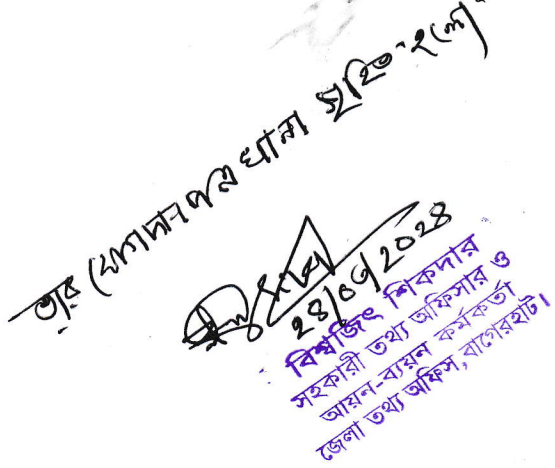 তার যোগদানপত্র খানা গৃহিত হলো
২৪/০৩/২০২৪
বিশ্বজিৎ শিকদার
সহকারী তথ্য অফিসার ও
আয়ন-ব্যয়ন কর্মকর্তা
জেলা তথ্য অফিস, বাগেরহাট।